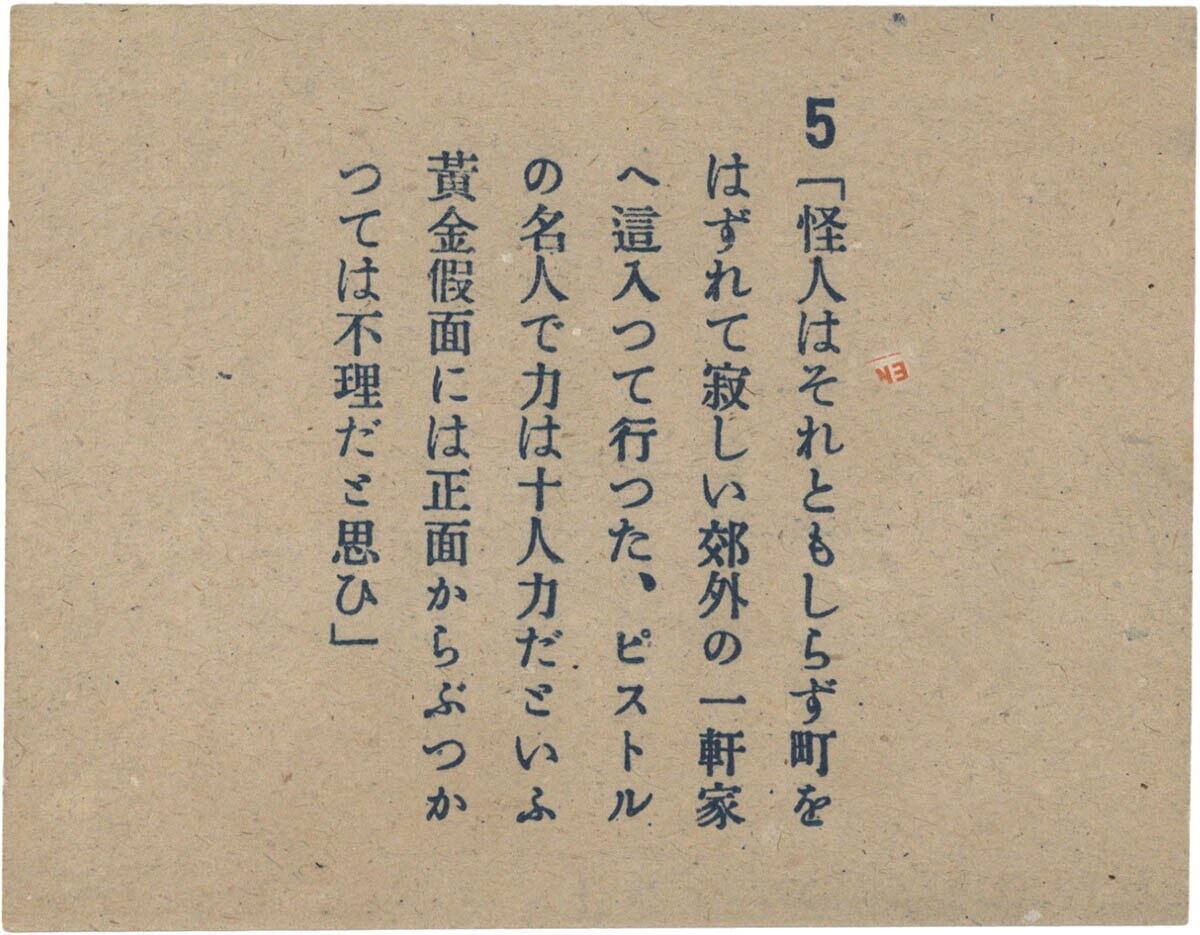 5「怪人はそれともしらず町を
はずれて寂しい郊外の一軒家
へ這入つて行つた、ピストル
の名人で力は十人力だといふ
黄金假面には正面からぶつか
つては不理だと思ひ」
EN